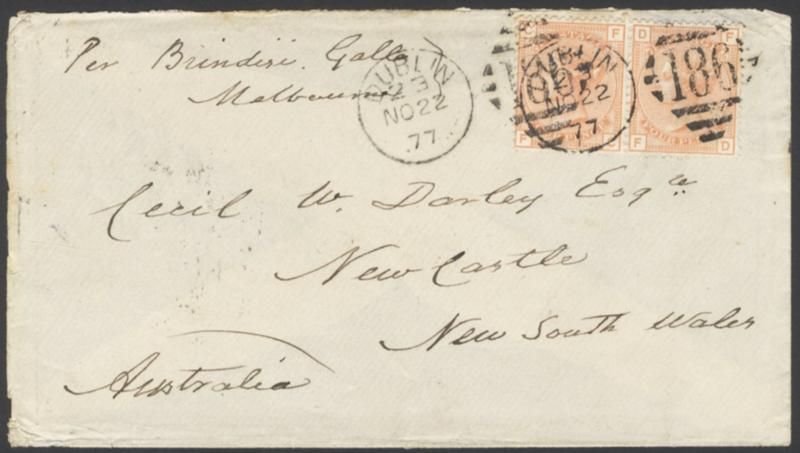 Per Brindisi, Galle
Melbourne
DUBLIN
NO 22
77
186
DUBLIN
NO 22
77
F
D
F
FOUR PE
F
D
Cecil W. Darley Esqre
New Castle
New South Wales
Australia